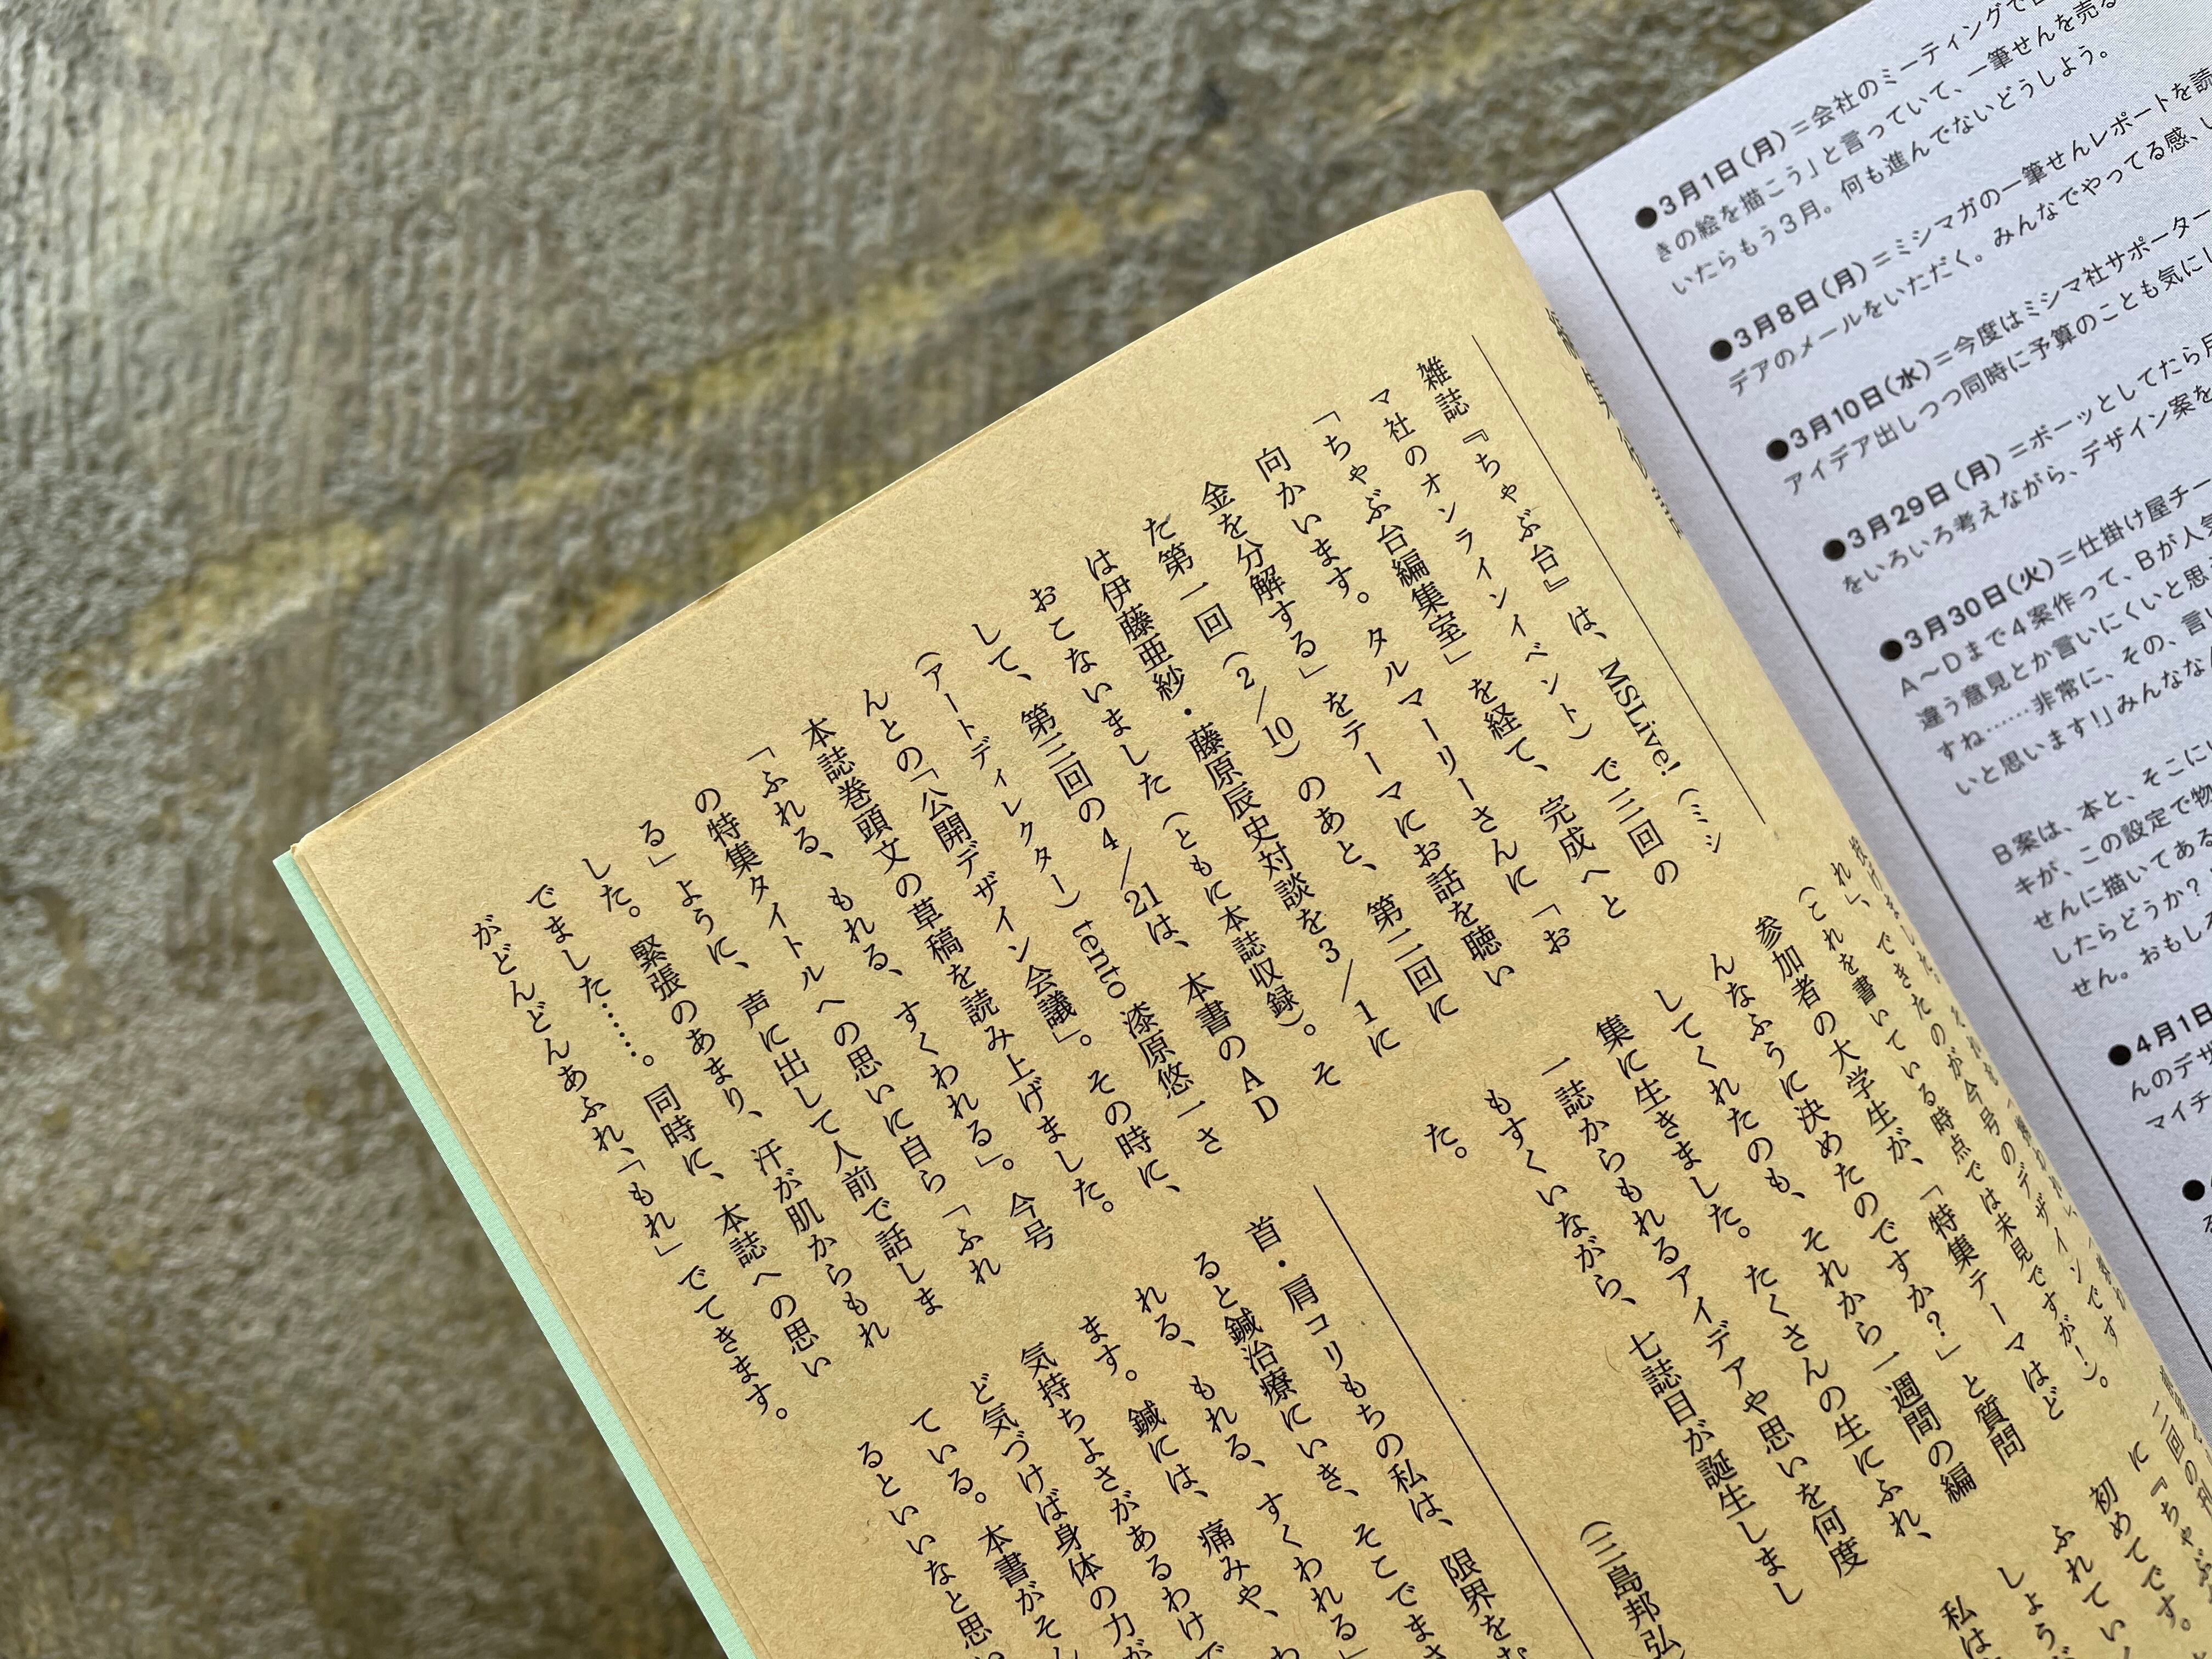 ●3月1日（月）＝会社のミーティングで
きの絵を描こう」と言っていて、一筆せんを売る
いたらもう3月。何も進んでないどうしよう。
●3月8日（月）＝ミシマガの一筆せんレポートを読
デアのメールをいただく。みんなでやってる感、い
●3月10日（水）＝今度はミシマ社サポーター
アイデア出しつつ同時に予算のことも気にし
●3月29日（月）＝ボーッとしてたら
をいろいろ考えながら、デザイン案を
●3月30日（火）＝仕掛け屋チー
A〜Dまで4案作って、Bが人気
違う意見とか言いにくいと思
すね……非常に、その、言い
いと思います！」みんななん
B案は、本と、そこに
キが、この設定で物
せんに描いてある
したらどうか？
せん。おもしろ
●4月1日
んのデザ
マイチ
雑誌『ちゃぶ台』は、MSLive!（ミシ
マ社のオンラインイベント）で三回の
「ちゃぶ台編集室」を経て、完成へと
向かいます。タルマーリーさんに「お
金を分解する」をテーマにお話を聴い
た第一回（2／10）のあと、第二回に
は伊藤亜紗・藤原辰史対談を3／1に
おこないました（ともに本誌収録）。そ
して、第三回の4／21は、本書のAD
（アートディレクター）tento 漆原悠一さ
んとの「公開デザイン会議」。その時に、
本誌巻頭文の草稿を読み上げました。
「ふれる、もれる、すくわれる」。今号
の特集タイトルへの思いに自ら「ふれ
る」ように、声に出して人前で話しま
した。緊張のあまり、汗が肌からもれ
でました……。同時に、本誌への思い
がどんどんあふれ、「もれ」でてきます。
れ」、できたのが今号のデザインです
（これを書いている時点では未見ですが！）。
参加者の大学生が、「特集テーマはど
んなふうに決めたのですか？」と質問
してくれたのも、それから一週間の編
集に生きました。たくさんの生にふれ、
一誌からもれるアイデアや思いを何度
もすくいながら、七誌目が誕生しまし
た。
（三島邦弘）
首・肩コリもちの私は、限界を
ると鍼治療にいき、そこでまさ
れる、もれる、すくわれる」
ます。鍼には、痛みや、
気持ちよさがあるわけで
ど気づけば身体の力が
ている。本書がそん
るといいなと思い
に『ちゃぶ
初めてです。
ふれてい
しょう
私は